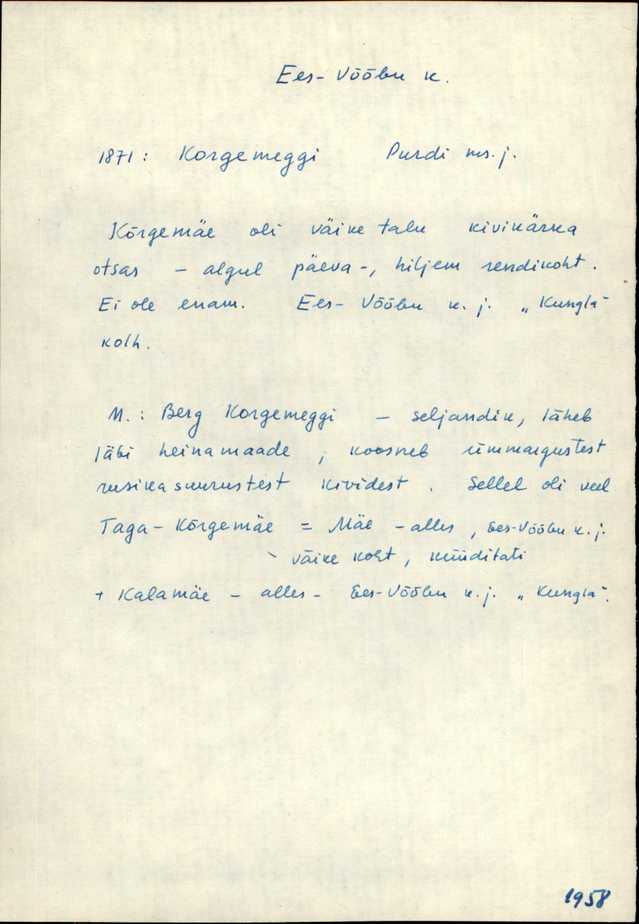 Ees-Võõbu k.
1871: Korgemeggi Purdi ms. j.
Kõrgemäe oli väike talu kivikärka
otsas – algul päeva-, hiljem rendikoht.
Ei ole enam. Ees-Võõbu k. j. „Kungla"
kolh.
M.: Berg Korgemeggi – seljandik, läheb
läbi heinamaade, koosneb ümmargustest
rusikasuurustest kividest. Sellel oli veel
Taga-Kõrgemäe = Mäe – alles, Ees-Võõbu k. j.
väike koht, küüditati
+ Kalamäe – alles – Ees-Võõbu k. j. „Kungla".
1958